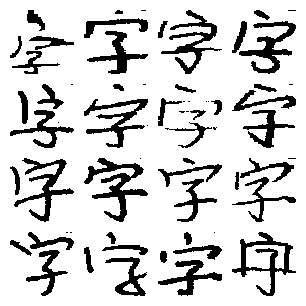 字字字字
字字字字
字字字字
字字字字